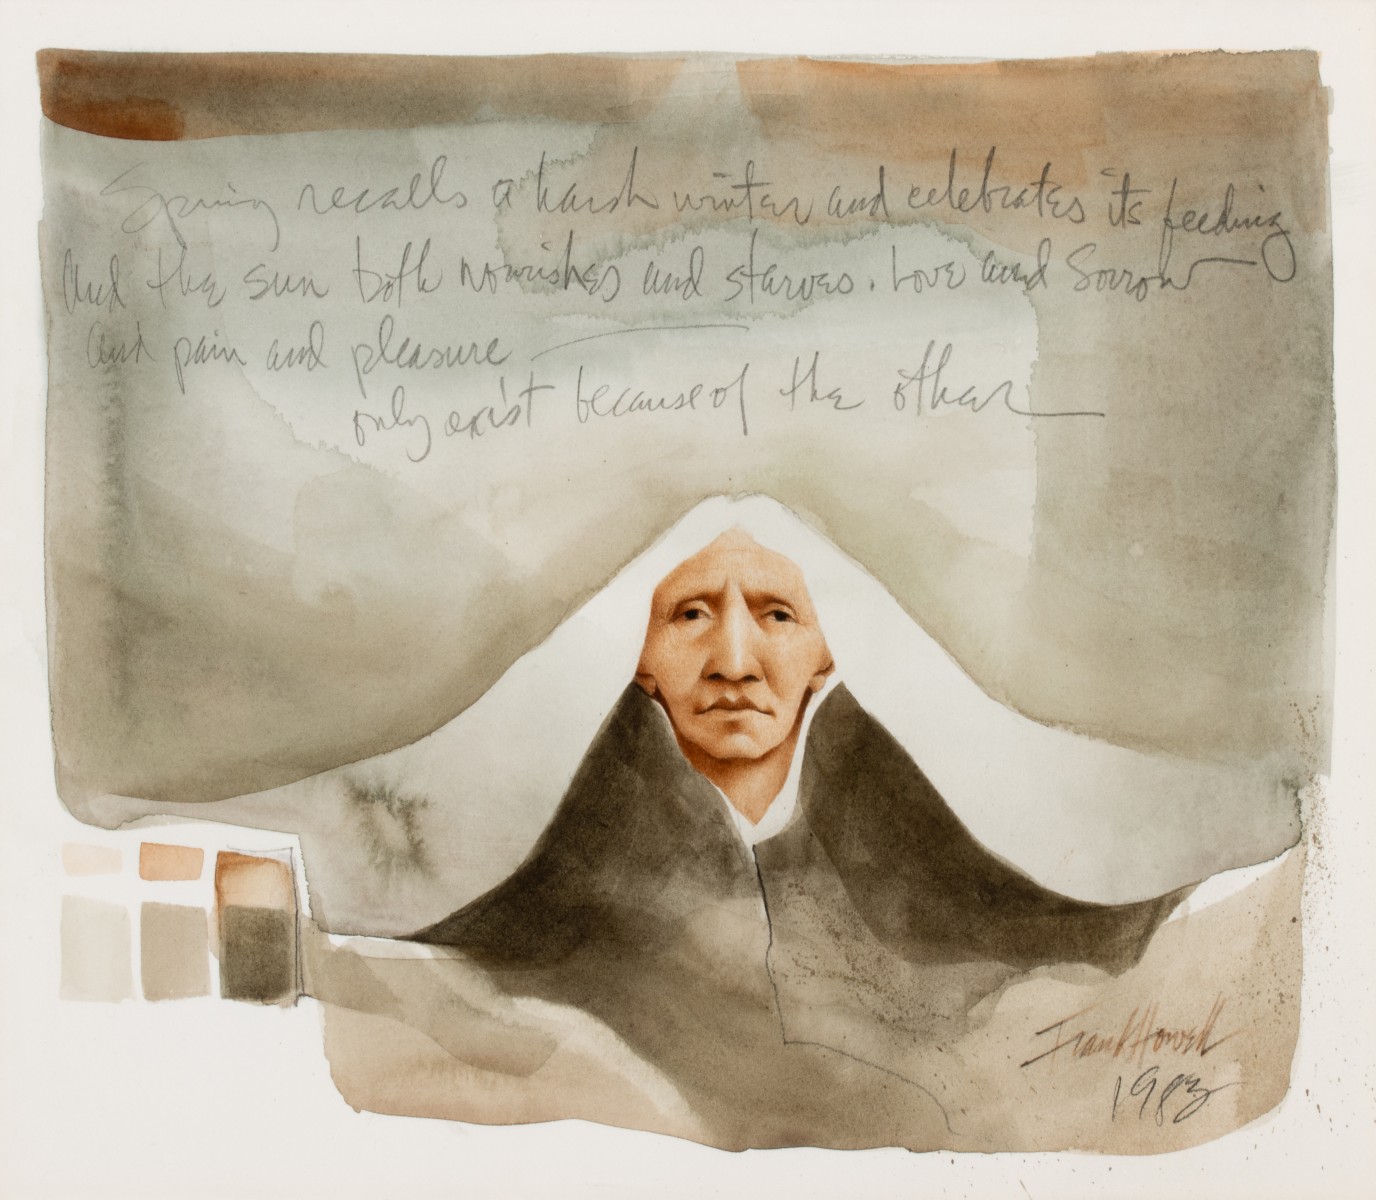 Spring recalls a harsh winter and celebrates its feeding
and the sun both nourishes and starves. Love and Sorrow
and pain and pleasure
only exist because of the other
Frank Howell
1983